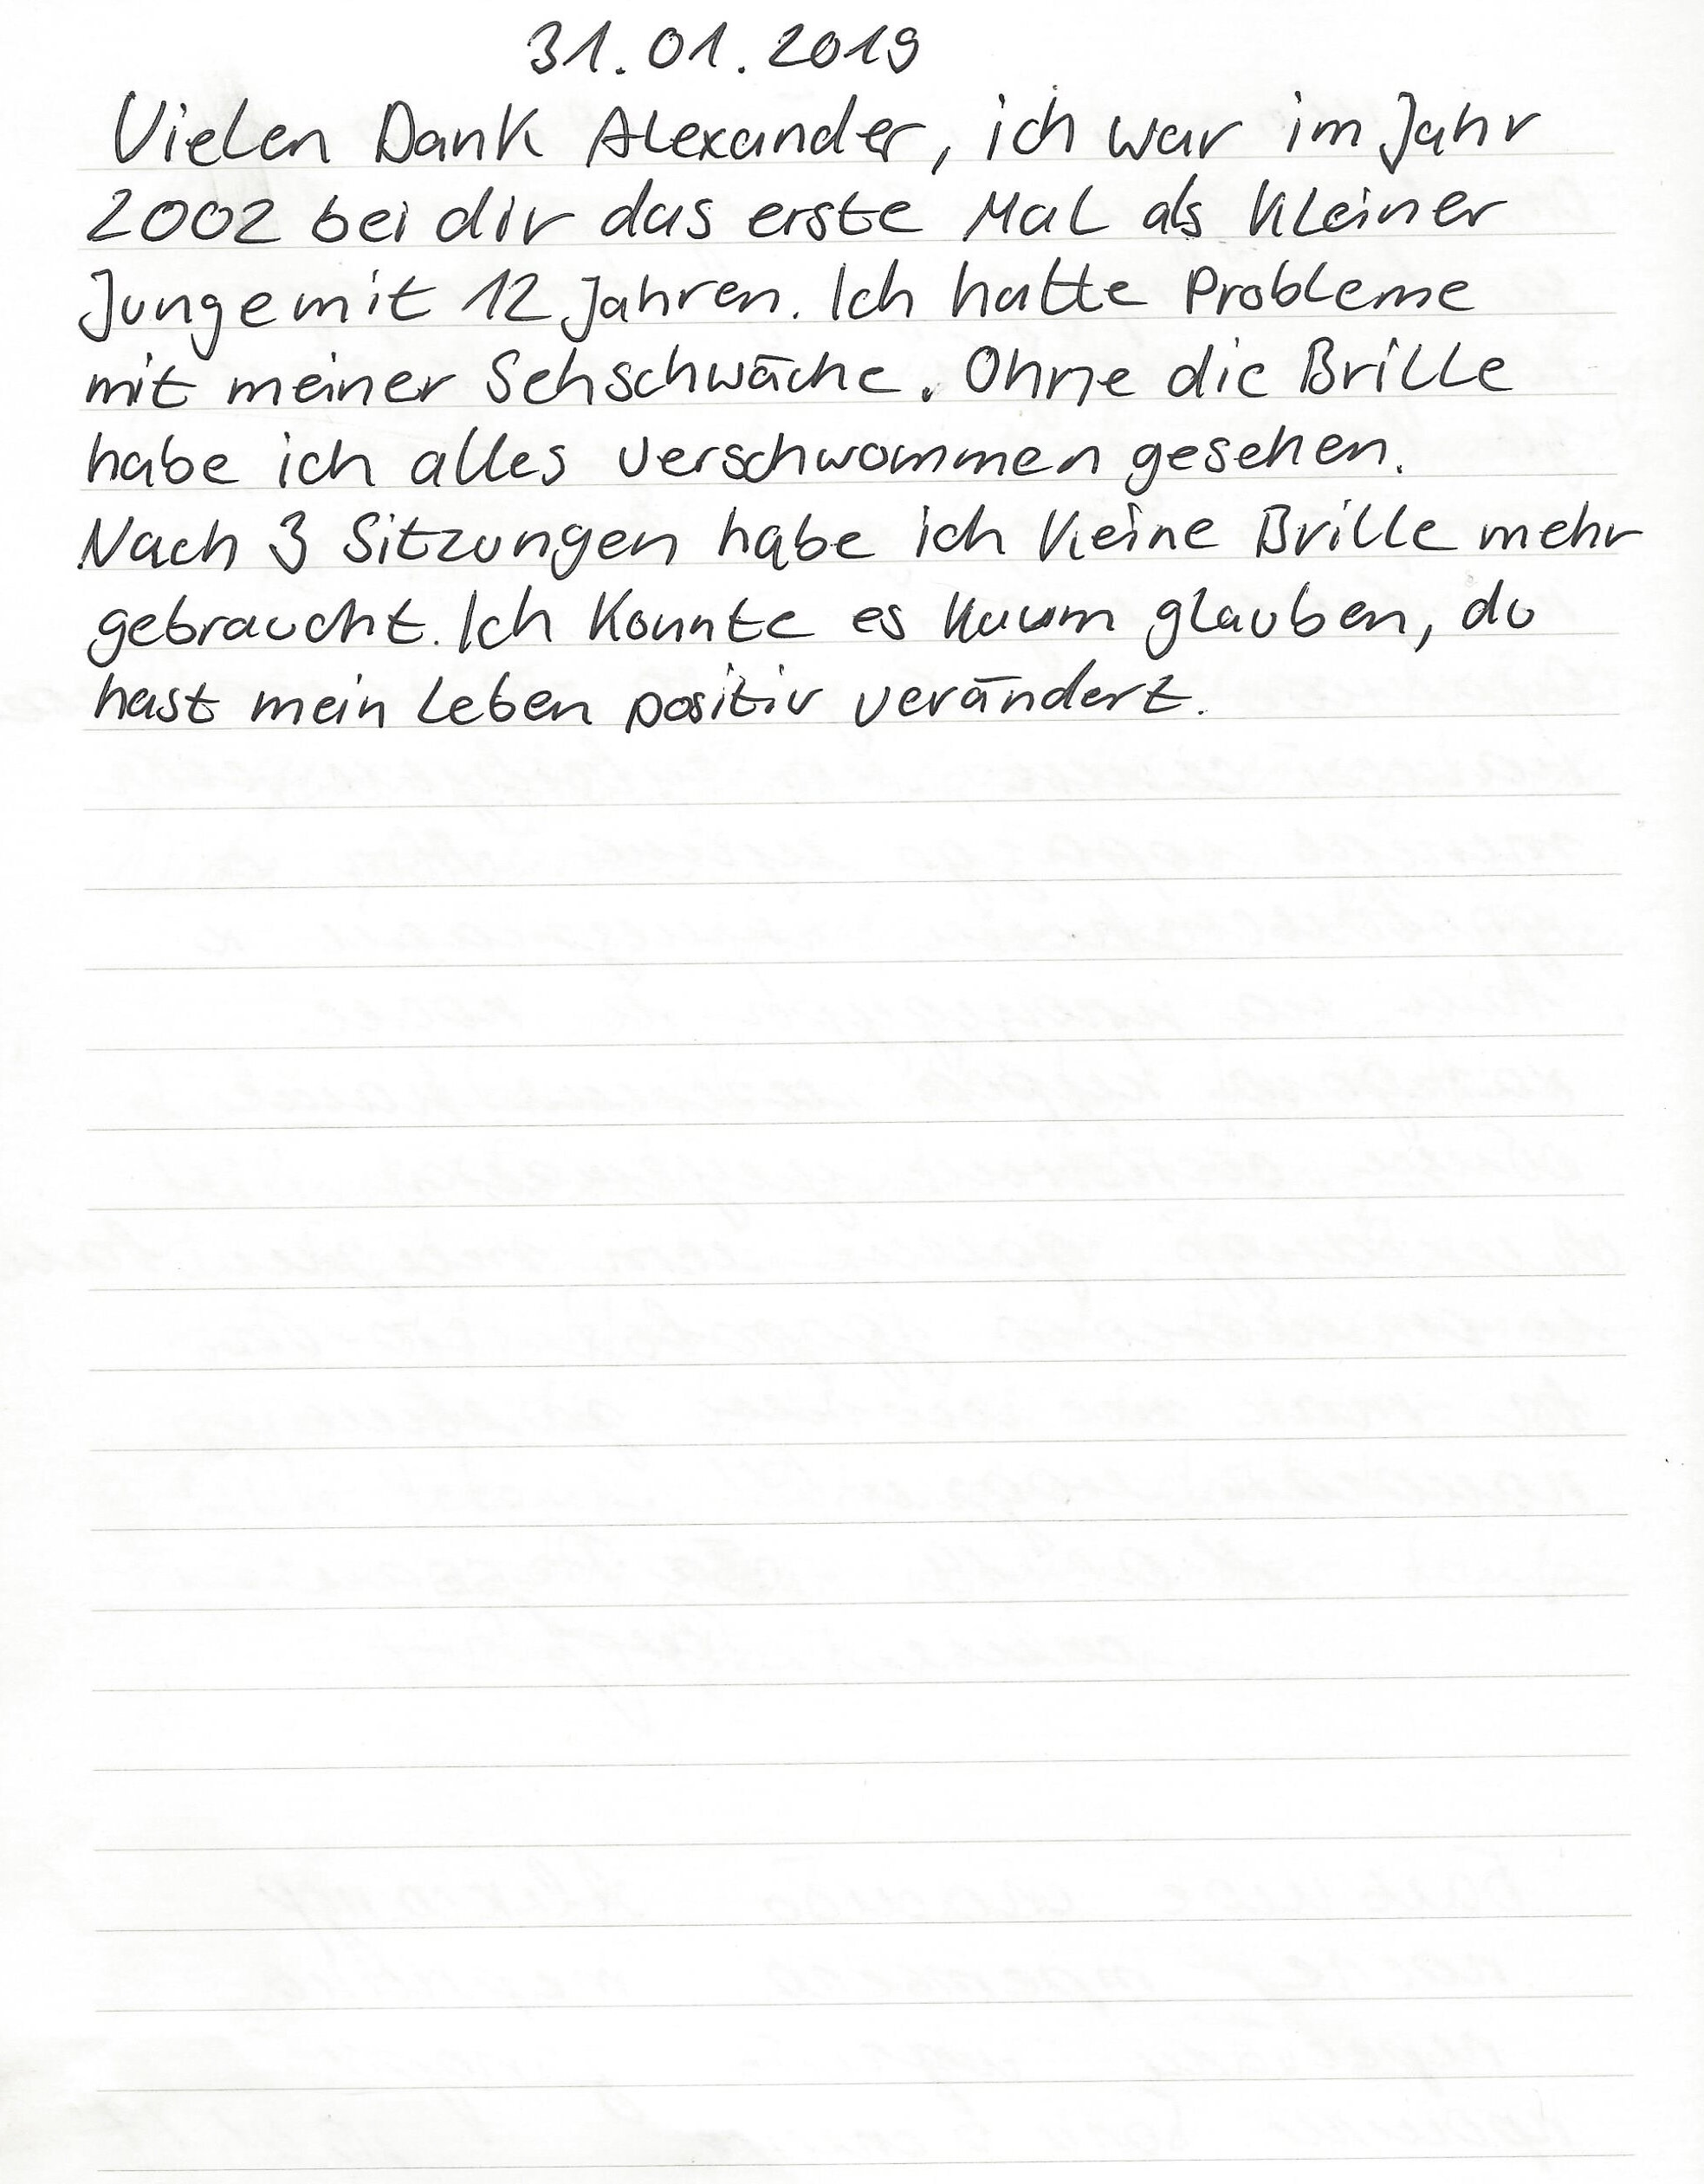 31.01.2019
Vielen Dank Alexander, ich war im Jahr
2002 bei dir das erste Mal als kleiner
Junge mit 12 Jahren. Ich hatte Probleme
mit meiner Sehschwäche. Ohne die Brille
habe ich alles verschwommen gesehen.
Nach 3 Sitzungen habe ich keine Brille mehr
gebraucht. Ich konnte es kaum glauben, du
hast mein Leben positiv verändert.